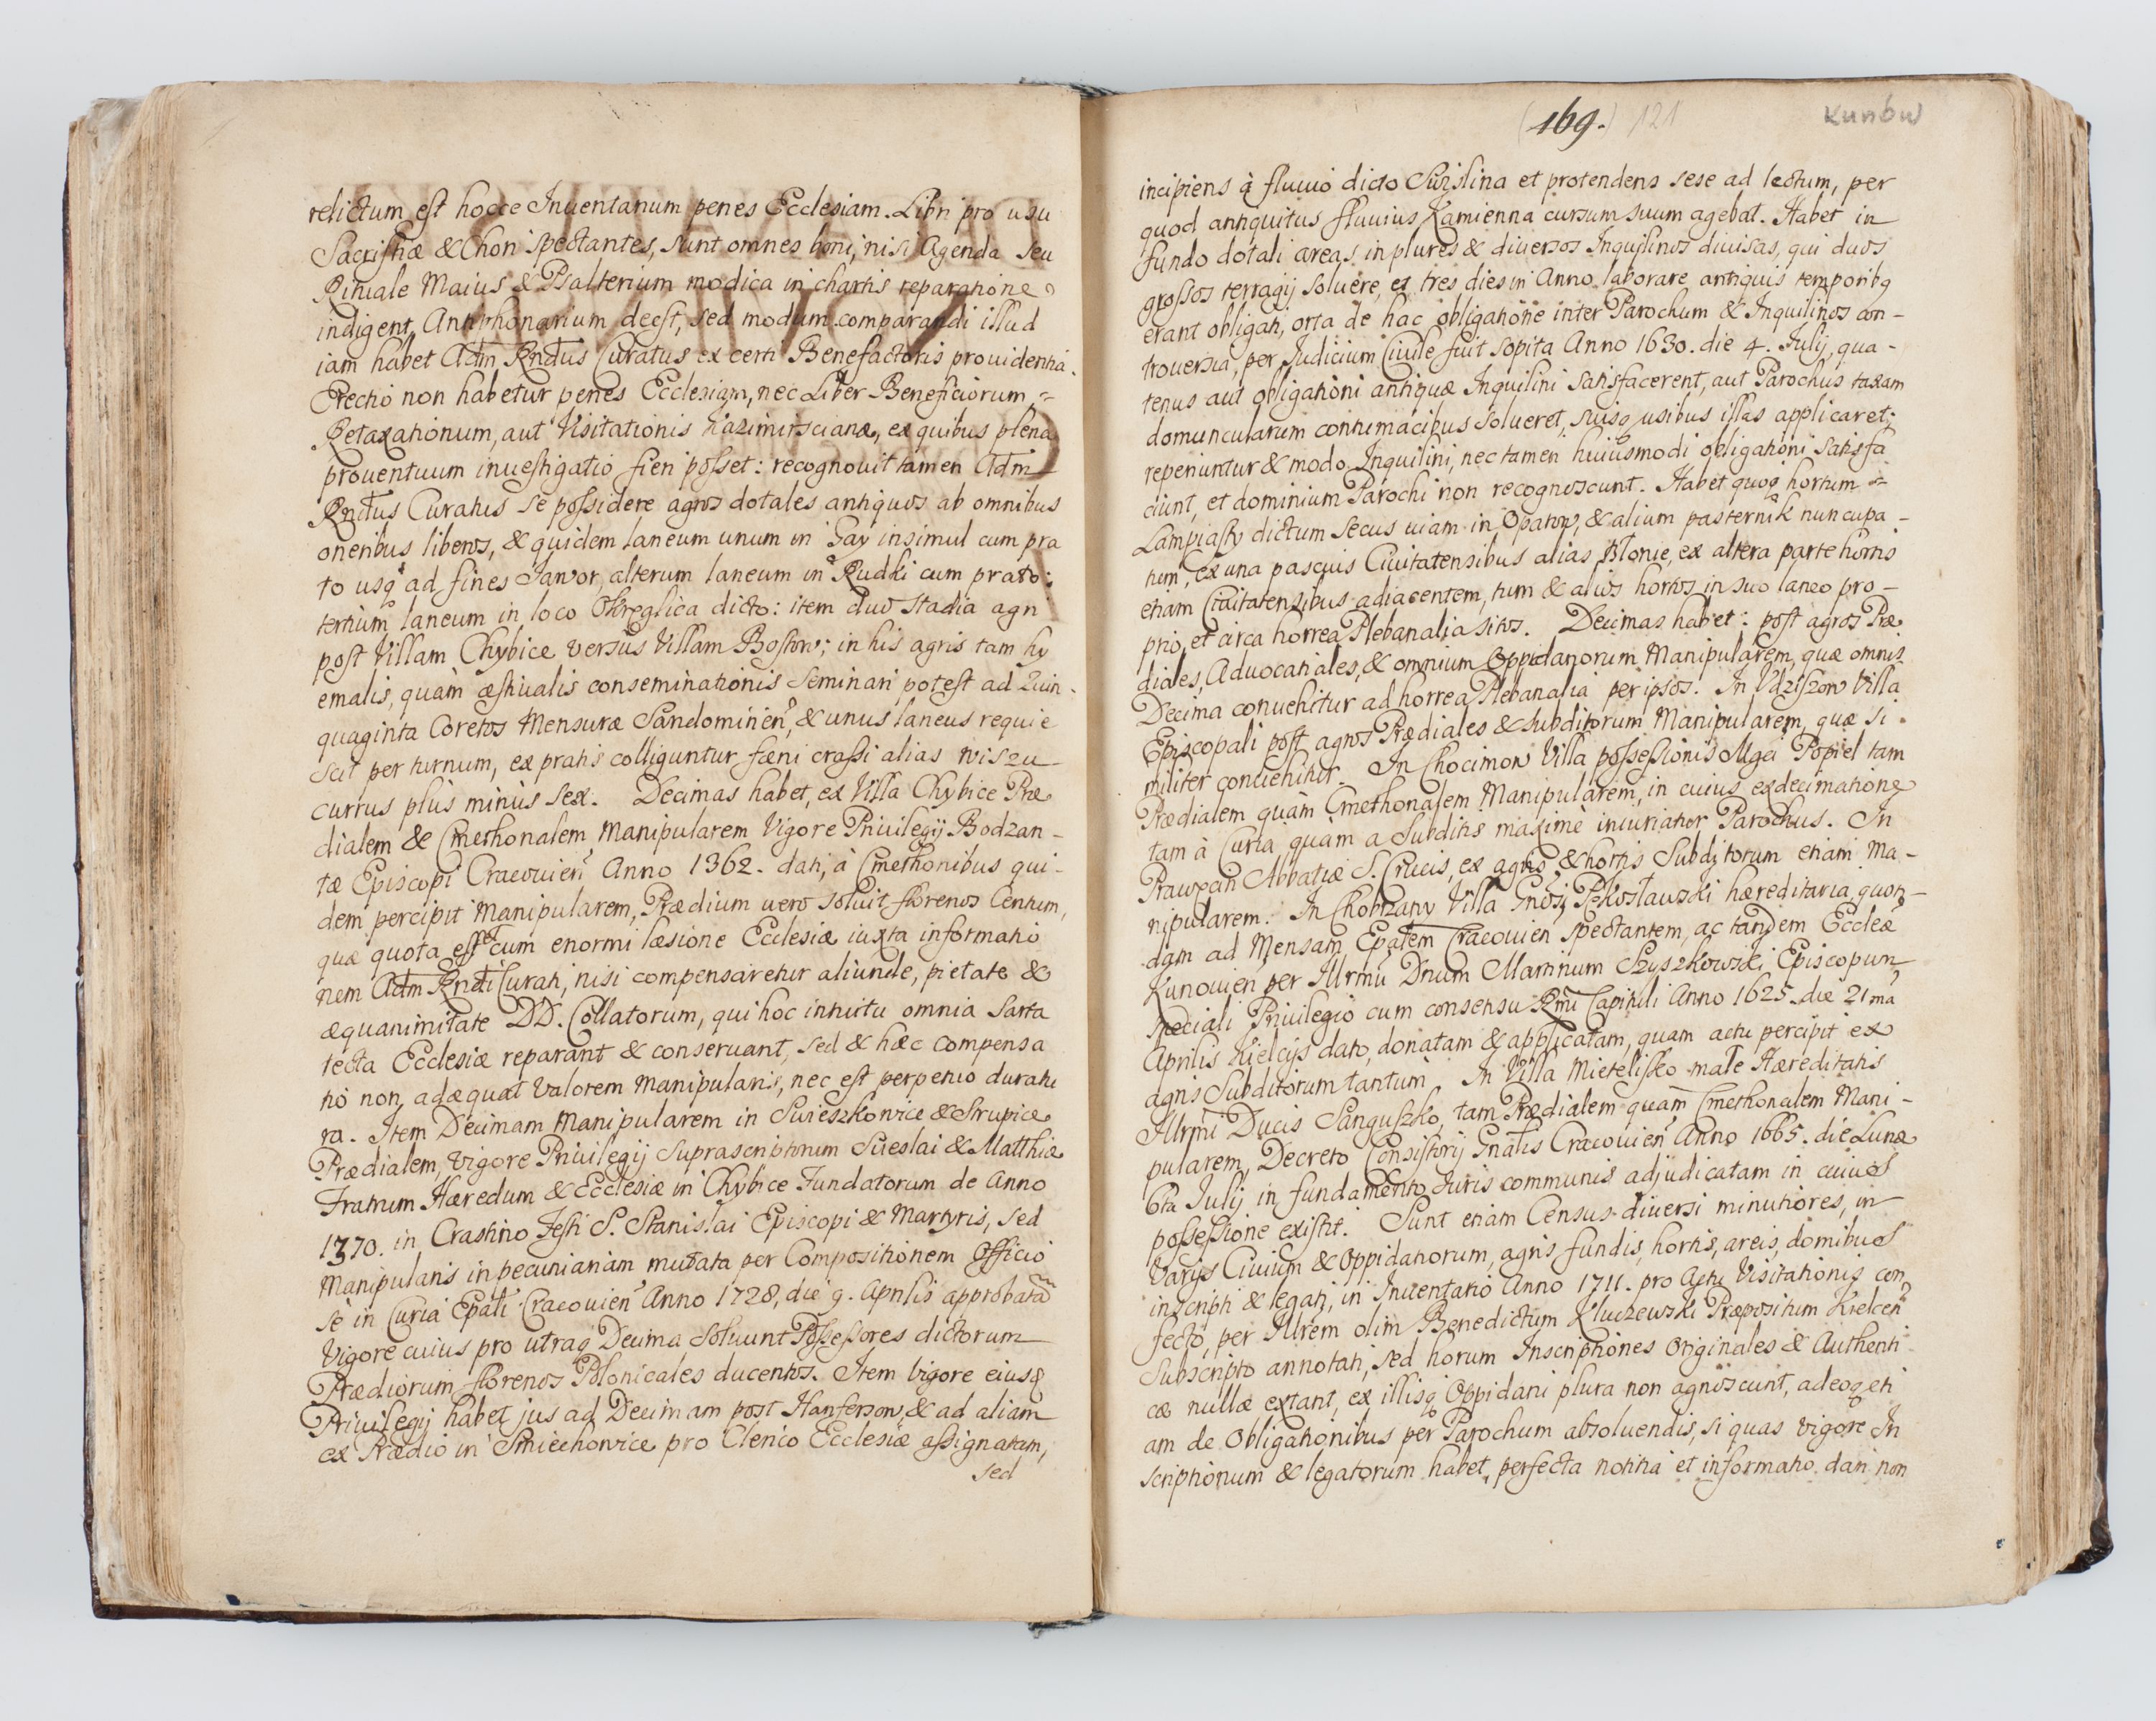 relictum est hocce Inuentarium penes Ecclesiam. Libri pro usu
Sacristiæ & Chori spectantes, sunt omnes boni, nisi Agenda seu
Rituale Maius & Psalterium modica in chartis reparatione
indigent, Antiphonarium deest, sed modum comparandi illud
iam habet Adm Rndus Curatus ex certi Benefactoris prouidentia.
Erectio non habetur penes Ecclesiam, nec Liber Beneficiorum
Retaxationum, aut Visitationis Kazimirscianæ, ex quibus plena
prouentuum inuestigatio fieri posset: recognouit tamen Adm
Rndus Curatus se possidere agros dotales antiquos ab omnibus
oneribus liberos, & quidem laneum unum in Gay insimul cum pra
to usq ad fines Jawor, alterum laneum in Rudki cum prato:
tertium laneum in loco Okręglica dicto: item duo stadia agri
post Villam Chybice versus Villam Bostow; in his agris tam hy
emalis, quàm æstiualis conseminationis seminari potest ad Quin-
quaginta Coretos Mensuræ Sandomirien, & unus laneus requie
scit per turnum, ex pratis colliguntur fæni crassi alias wiszu
currus plus minus sex. Decimas habet, ex Villa Chybice Præ
dialem & Cmethonalem Manipularem Vigore Priuilegij Bodzan-
tæ Episcopi Cracouien Anno 1362. dati, à Cmethonibus qui-
dem percipit Manipularem, Prædium uero soluit florenos Centum,
quæ quota esset cum enormi læsione Ecclesiæ iuxta informatio
nem Adm Rndi Curati, nisi compensaretur aliunde, pietate &
æquanimitate DD. Collatorum, qui hoc intuitu omnia sarta
tecta Ecclesiæ reparant & conseruant, sed & hæc compensa
tio non adæquat Valorem manipularis, nec est perpetuo duratu
ra. Item Decimam Manipularem in Swieszkowice & Strupice
Prædialem, Vigore Priuilegij Suprascriptorum Swieslai & Matthiæ
Fratrum Hæredum & Ecclesiæ in Chybice Fundatorum de Anno
1370. in Crastino Festi S. Stanislai Episcopi & Martyris, sed
Manipularis in pecuniariam mutata per Compositionem Officio
se in Curia Epali Cracouien Anno 1728, die 9. Aprilis approbatam
Vigore cuius pro utraq Decima soluunt Possessores dictorum
Prædiorum florenos Polonicales ducentos. Item Vigore eiusd
Priuilegij habet jus ad Decimam post Hanferson, & ad aliam
ex Prædio in Smiechowice pro Clerico Ecclesiæ assignatam,
sed
(169.) 121
Kunów
incipiens à fluuio dicto Swislina et protendens sese ad lectum, per
quod antiquitus fluuius Kamienna cursum suum agebat. Habet in
fundo dotali areas in plures & diuersos Inquilinos diuisas, qui duos
grossos terragij soluere, et tres dies in Anno laborare antiquis temporibq
erant obligati, orta de hac obligatione inter Parochum & Inquilinos con-
trouersia, per Judicium Ciuile fuit sopita Anno 1630. die 4. Julij, qua-
tenus aut obligationi antiquæ Inquilini satisfacerent, aut Parochus taxam
domuncularum contumacibus solueret, suisq usibus illas applicaret;
reperiuntur & modo Inquilini, nec tamen huiusmodi obligationi satisfa
ciunt, et dominium Parochi non recognoscunt. Habet quoq hortum
Lampiasty dictum secus uiam in Opatow, & alium pasternik nuncupa-
tum, ex una pascuis Ciuitatensibus alias Błonie, ex altera parte hortis
etiam Ciuitatensibus adiacentem, tum & alios hortos in suo laneo pro-
prio, et circa horrea Plebanalia sitos. Decimas habet: post agros Præ
diales, Aduocatiales, & omnium Oppidanorum Manipularem, quæ omnis
Decima conuehitur ad horrea Plebanalia per ipsos. In Udziszow Villa
Episcopali post agros Prædiales & subditorum Manipularem, quæ si-
militer conuehitur. In Chocimow Villa possessionis Mgci Popiel tam
Prædialem quàm Cmethonalem Manipularem, in cuius exdecimatione
tam à Curia quam a Subditis maximè iniuriatur Parochus. In
Prawęcin Abbatiæ S. Crucis, ex agris & hortis Subditorum etiam Ma-
nipularem. In Chobrzany Villa Gnosi Pękosławski hæreditaria, quon-
dam ad Mensam Epalem Cracouien spectantem, ac tandem Eccleæ
Kunouien per Illrmu Dnum Martinum Szyszkowski Episcopum
speciali Priuilegio cum consensu Rmi Capituli Anno 1625. die 21ma
Aprilis Kielcijs dato, donatam & applicatam, quam actu percipit ex
agris Subditorum tantum. In Villa Mieteliszko małe Hæreditatis
Illrmi Ducis Sanguszko, tam Prædialem quam Cmethonalem Mani-
pularem, Decreto Consistorij Gnalis Cracouien Anno 1665. die Lunæ
6ta Julij in fundamento Juris communis adjudicatam in cuius
possessione existit. Sunt etiam Census diuersi minutiores, in
Varijs Ciuium & Oppidanorum, agris fundis, hortis, areis, domibus
inscripti & legati, in Inuentario Anno 1711. pro Actu Visitationis con
fecto, per Illrem olim Benedictum Kluczewski Præpositum Kielcen
Subscripto annotati, sed horum Inscriptiones Originales & Authenti
cæ nullæ extant, ex illisq Oppidani plura non agnoscunt, adeoq eti
am de Obligationibus per Parochum absoluendis, si quas vigore In
scriptionum & legatorum habet, perfecta notitia et informatio dari non